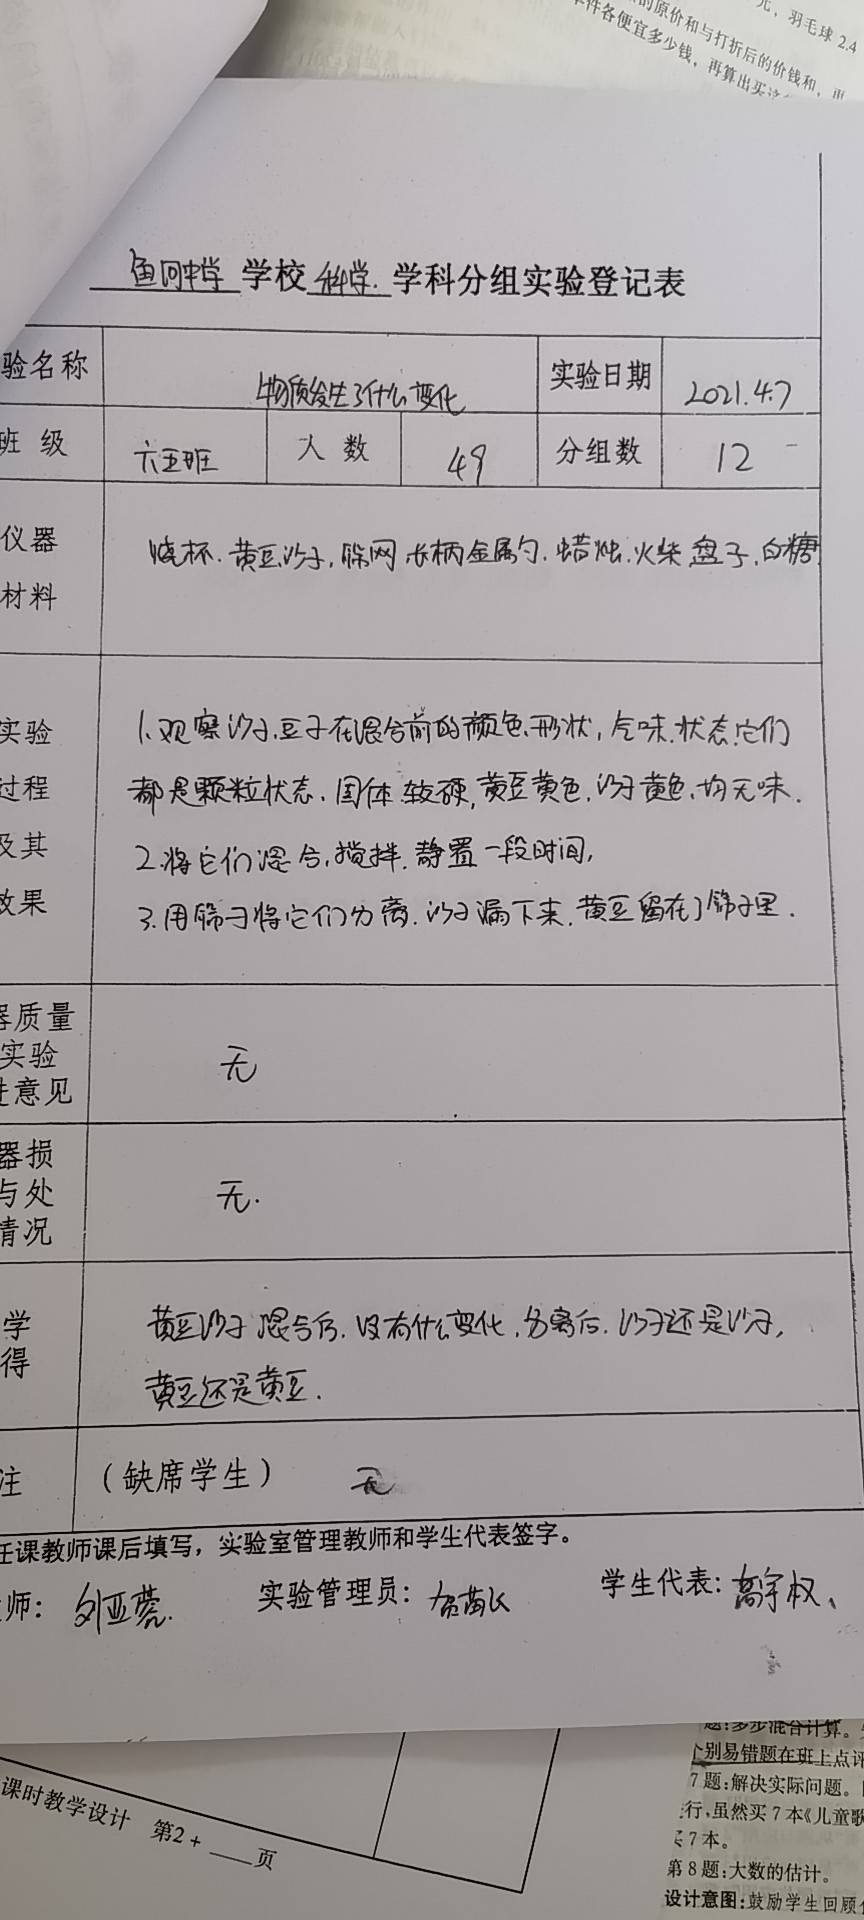 元，羽毛球 2.4
的原价和与打折后的价钱和，再
件各便宜多少钱，再算出买
鱼河中学 学校 科学. 学科分组实验登记表
验名称 物质发生了什么变化 实验日期 2021.4.7
班 级 六五班 人 数 49 分组数 12
仪器
材料
烧杯.黄豆.沙子,筛网.长柄金属勺.蜡烛.火柴.盘子.白糖
实验
过程
及其
效果
1.观察沙子.豆子在混合前的颜色.形状,气味.状态.它们
都是颗粒状态.固体.较硬,黄豆黄色.沙子黄色.均无味.
2.将它们混合,搅拌.静置一段时间,
3.用筛子将它们分离.沙子漏下来.黄豆留在了筛子里.
器质量
实验
进意见
无
器损
与处
情况
无.
学
得
黄豆沙子混合后.没有什么变化,分离后.沙子还是沙子,
黄豆还是黄豆.
注 （缺席学生） 无
任课教师课后填写，实验室管理教师和学生代表签字。
师： 刘亚蓉. 实验管理员： 学生代表: 高宇权、
题:多步混合计算。
个别易错题在班上点评
7题:解决实际问题。
行,虽然买7本《儿童歌
买7本。
第8题:大数的估计。
设计意图:鼓励学生回顾
课时教学设计 第2+ 页